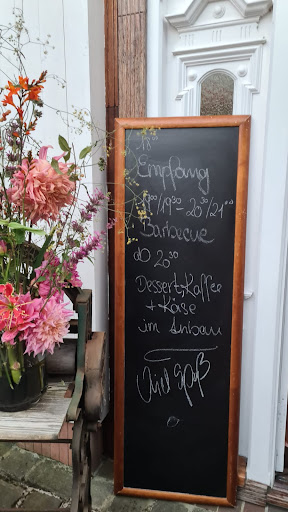 18⁰⁰
Empfang
19⁰⁰/19³⁰ - 20³⁰/21⁰⁰
Barbecue
ab 20³⁰
Dessert, Kaffee
+ Käse
im Anbau
Viel Spaß